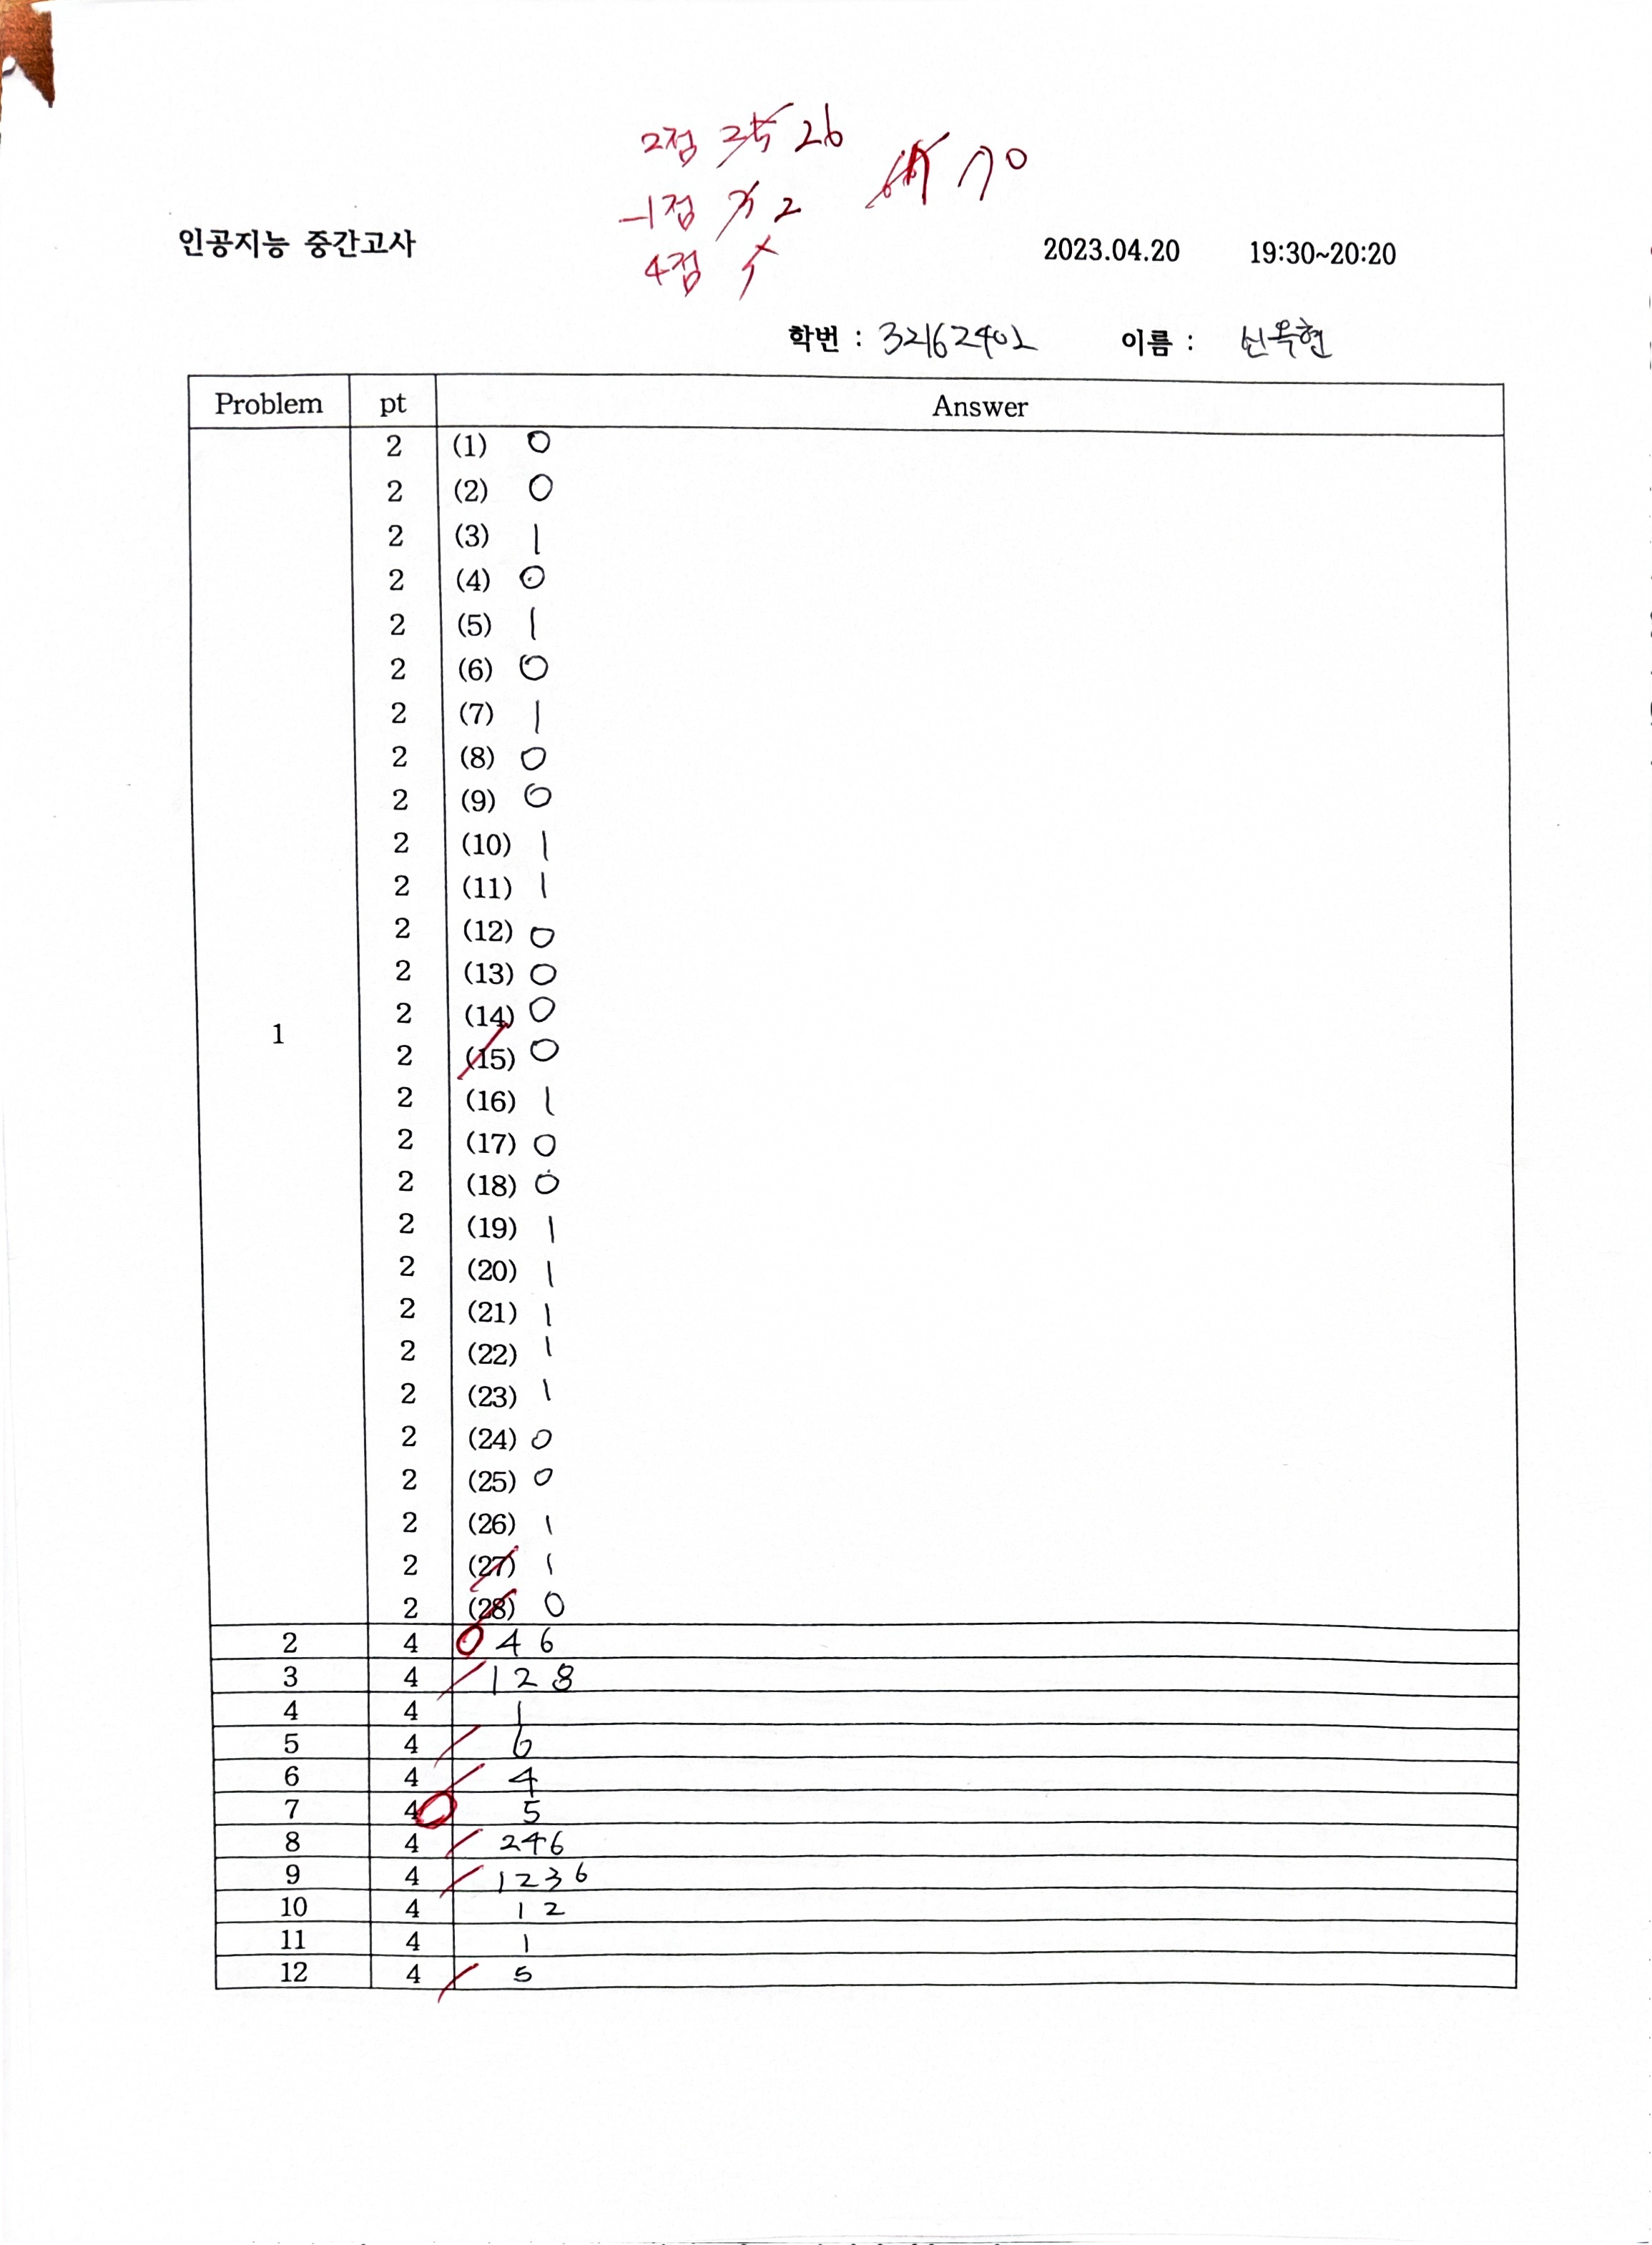 2점 25 26
-1점 3 2 70
4점 5
인공지능 중간고사 2023.04.20 19:30~20:20
학번 : 32162402 이름 : 신옥현
Problem pt Answer
2 (1) 0
2 (2) 0
2 (3) 1
2 (4) 0
2 (5) 1
2 (6) 0
2 (7) 1
2 (8) 0
2 (9) 0
2 (10) 1
2 (11) 1
2 (12) 0
2 (13) 0
2 (14) 0
1
2 (15) 0
2 (16) 1
2 (17) 0
2 (18) 0
2 (19) 1
2 (20) 1
2 (21) 1
2 (22) 1
2 (23) 1
2 (24) 0
2 (25) 0
2 (26) 1
2 (27) 1
2 (28) 0
2 4 4 6
3 4 1 2 8
4 4 1
5 4 6
6 4 4
7 4 5
8 4 2 4 6
9 4 1 2 3 6
10 4 1 2
11 4 1
12 4 5